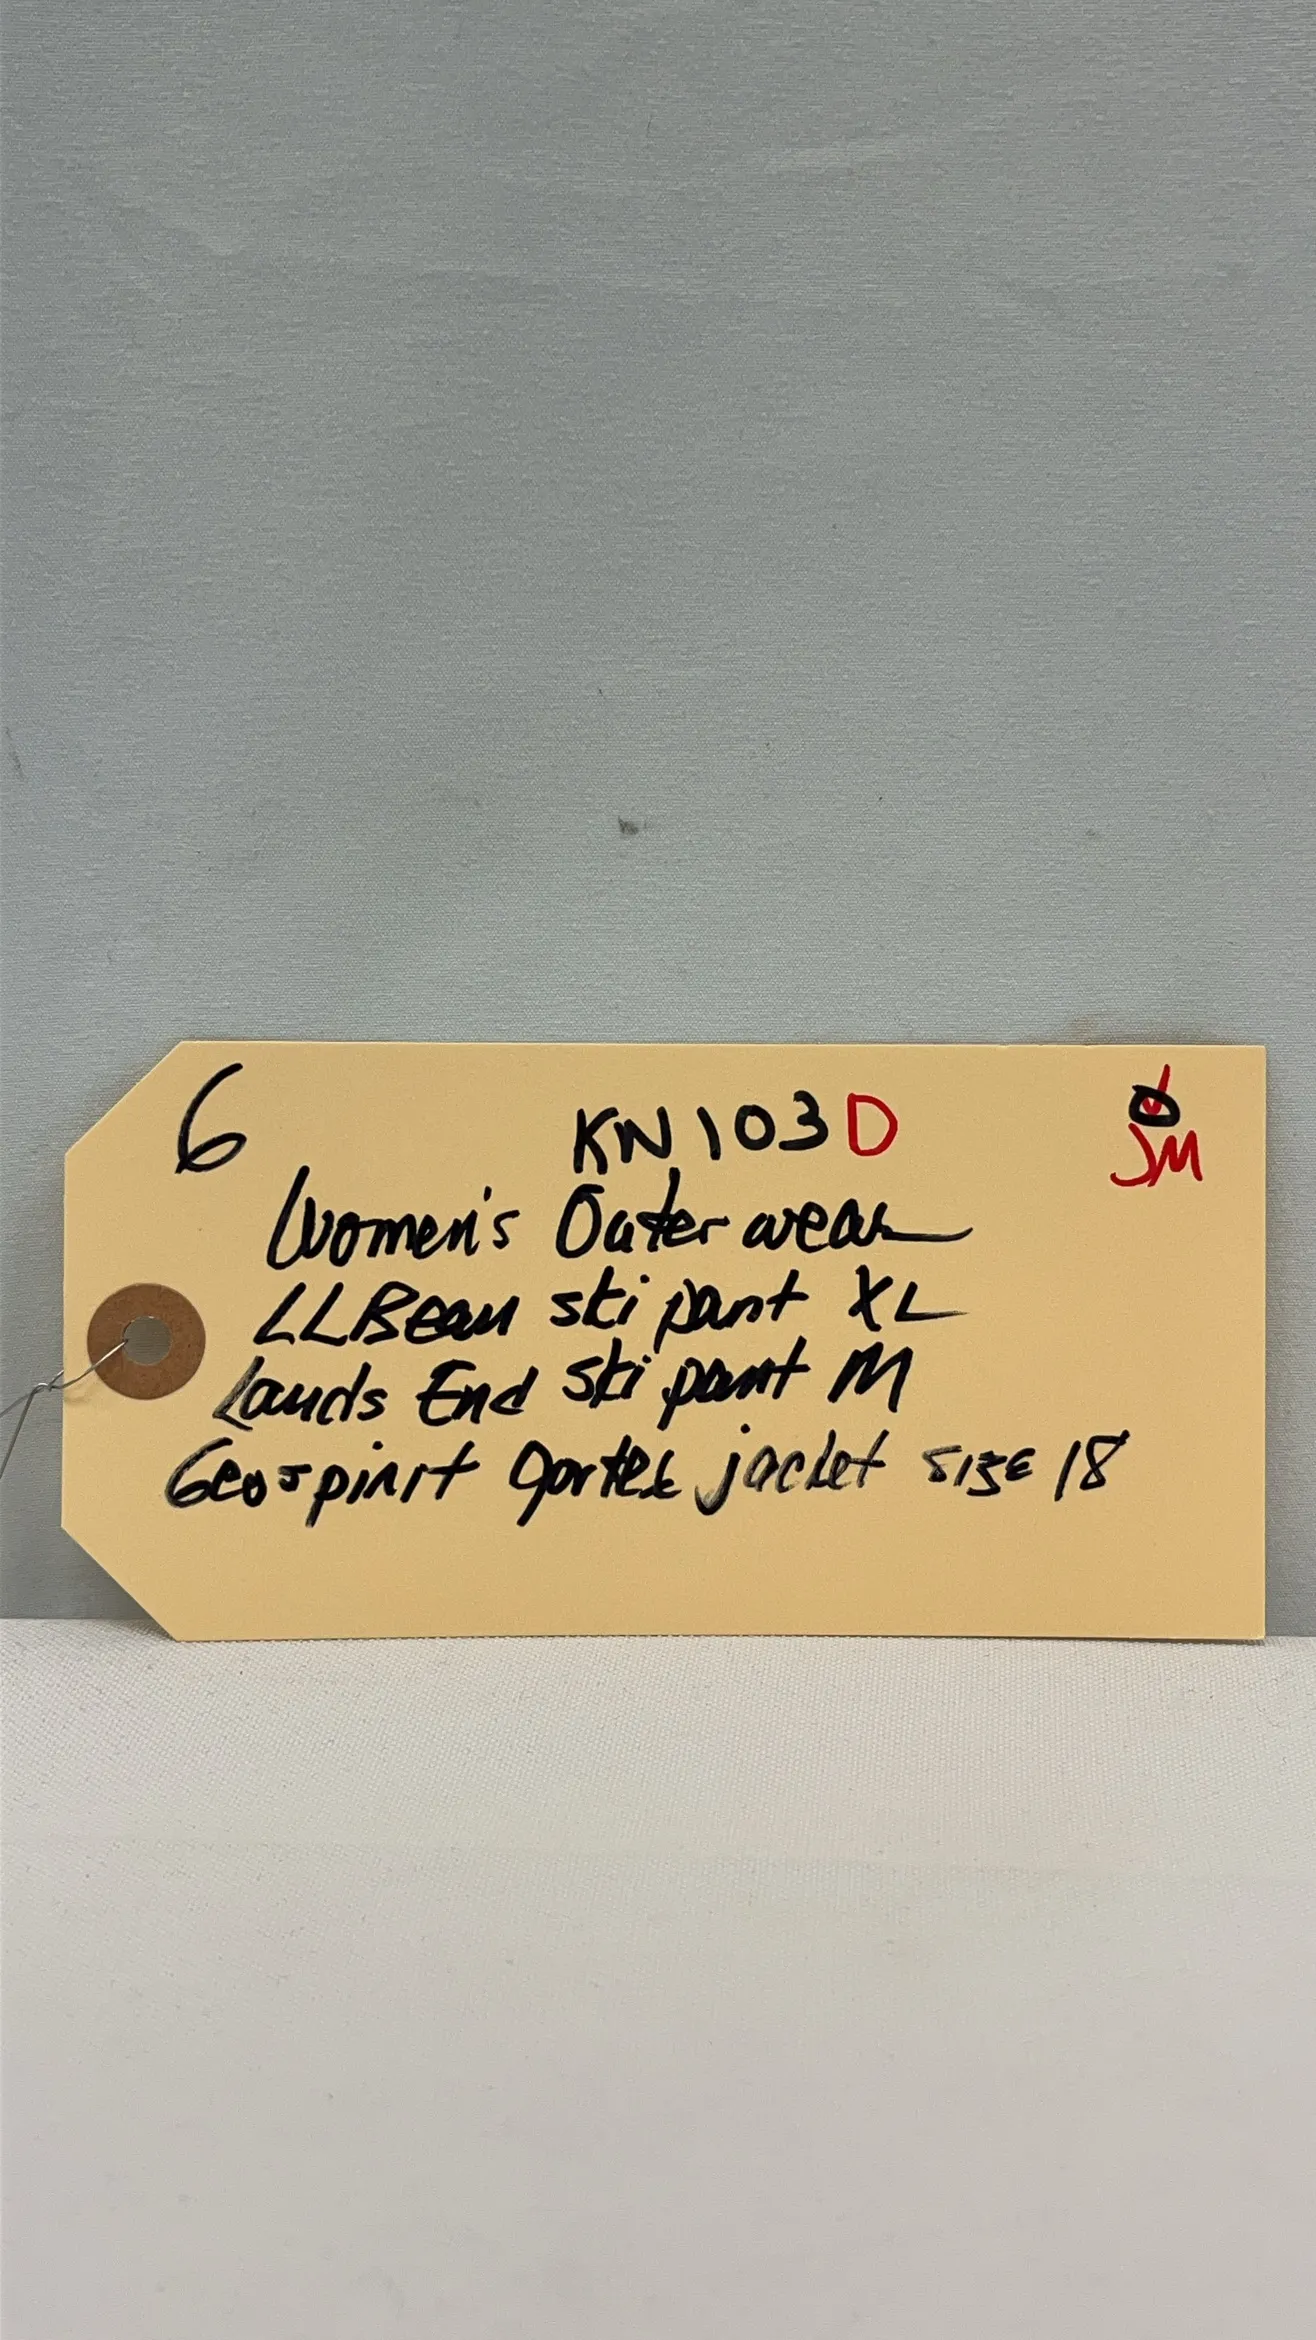 6 KN103D
JM
Women's Outerwear
LLBean ski pant XL
Lands End ski pant M
Geospirit gortex jacket size 18